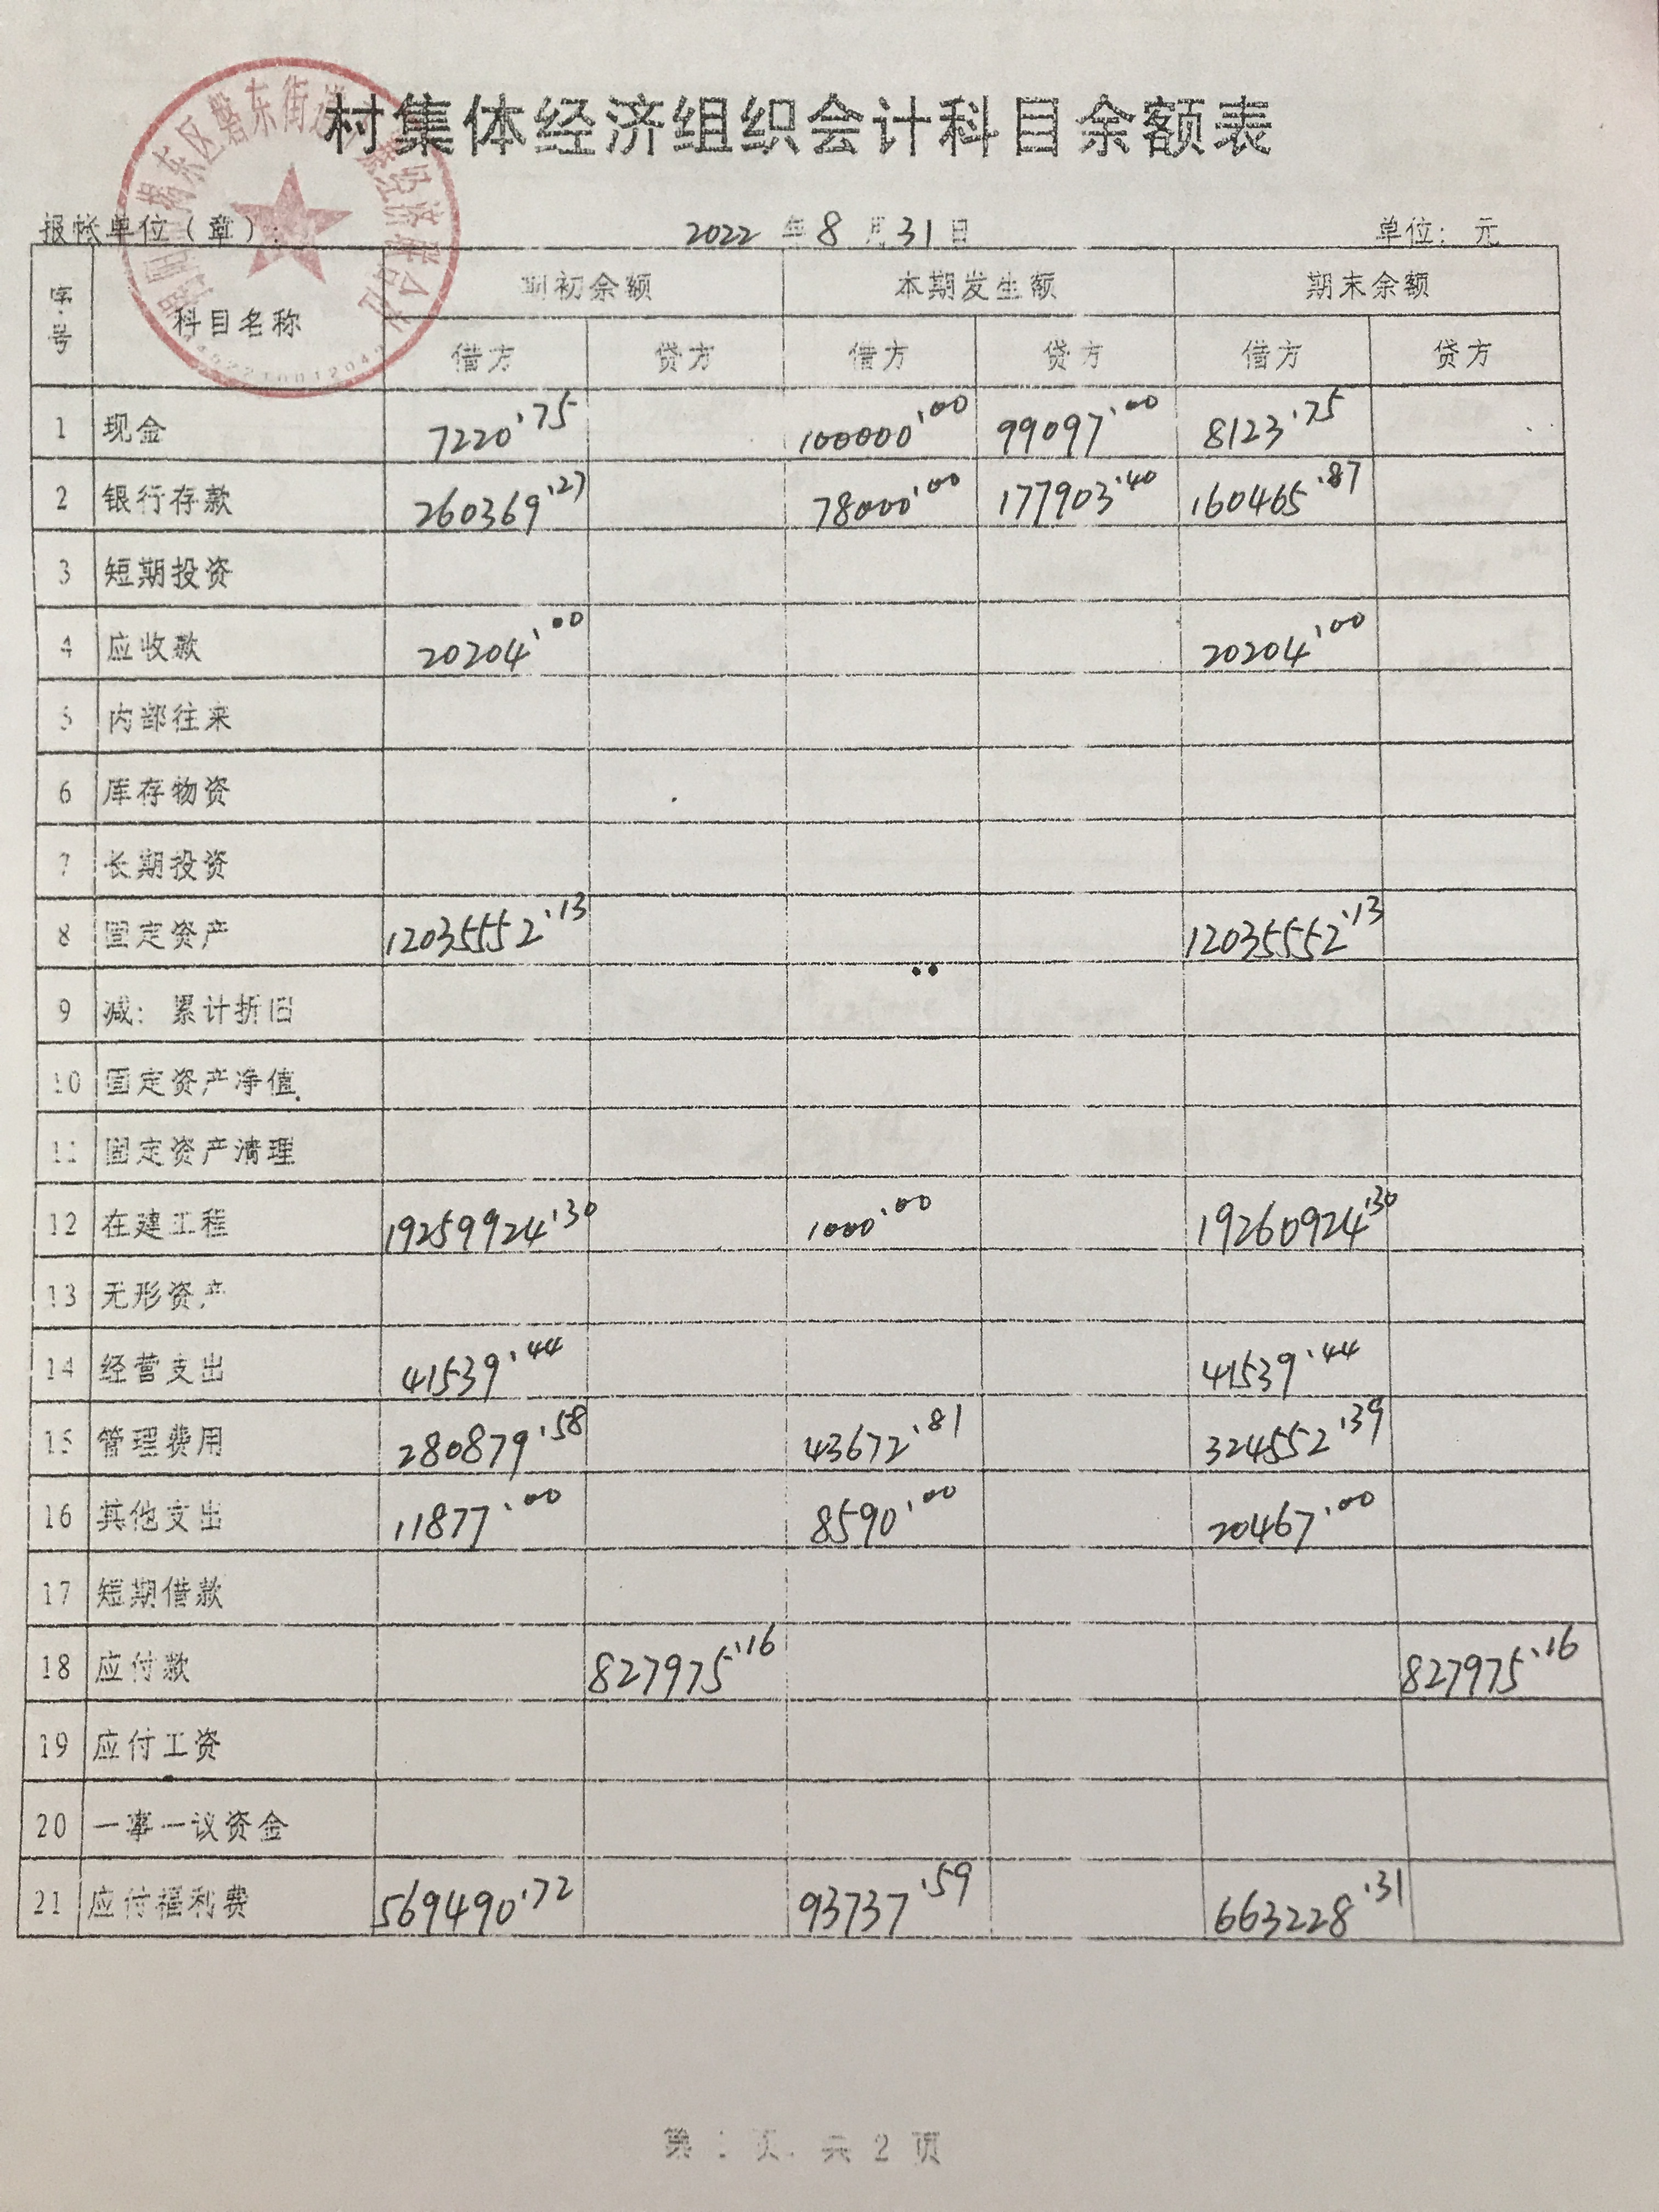 村集体经济组织会计科目余额表
报帐单位（章）： 2022 年 8 月 31 日 单位：元
序号 科目名称 期初余额 本期发生额 期末余额
借方 贷方 借方 贷方 借方 贷方
1 现金 7220.75 100000.00 99097.00 8123.75
2 银行存款 260369.27 78000.00 177903.40 160465.87
3 短期投资
4 应收款 20204.00 20204.00
5 内部往来
6 库存物资
7 长期投资
8 固定资产 12035552.13 12035552.13
9 减：累计折旧
10 固定资产净值
11 固定资产清理
12 在建工程 19259924.30 1000.00 19260924.30
13 无形资产
14 经营支出 41539.44 41539.44
15 管理费用 280879.58 43672.81 324552.39
16 其他支出 11877.00 8590.00 20467.00
17 短期借款
18 应付款 827975.16 827975.16
19 应付工资
20 一事一议资金
21 应付福利费 569490.72 93737.59 663228.31
第 1 页.共 2 页